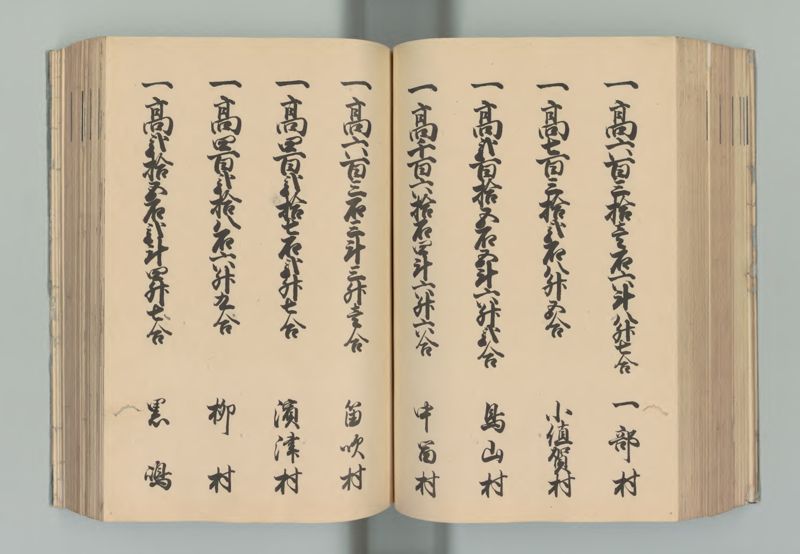 一高六百三拾壱石六斗八升七合 一部村
一高七百三拾弐石八升五合 小値賀村
一高弐百拾五石五斗六升弐合 島山村
一高千百六拾石四斗六升六合 中笛村
一高六百三石三斗三升壱合 笛吹村
一高四百弐拾七石弐升七合 濱津村
一高四百弐拾八石六升九合 柳村
一高弐拾五石弐斗四升七合 黒嶋